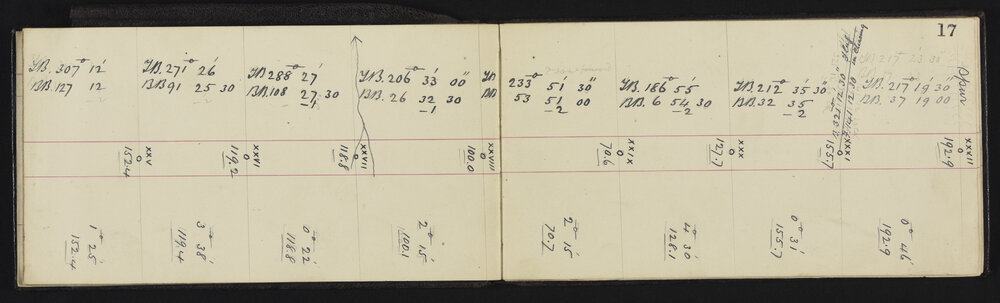 17
F.B. 307° 12'
B.B. 127 12
-2
F.B. 271° 26'
B.B. 91 25 30
-2
F.B. 288° 27'
B.B. 108 27 30
-4
F.B. 206° 33' 00"
B.B. 26 32 30
-1
F.B. 233° 51' 30"
B.B. 53 51 00
-2
F.B. 186° 55'
B.B. 6 54 30
-2
F.B. 212° 35' 30"
B.B. 32 35
-2
F.B. 217° 19' 30"
B.B. 37 19 00
XXV
152.4
XXVI
119.2
XXVII
118.8
XXVIII
100.0
XXIX
70.6
XXX
127.7
XXXI
155.7
XXXII
192.9
1° 25'
152.4
3° 38'
119.4
0° 22'
118.8
2° 15'
100.1
2° 15'
70.7
4° 30'
128.1
0° 31'
155.7
0° 46'
192.9